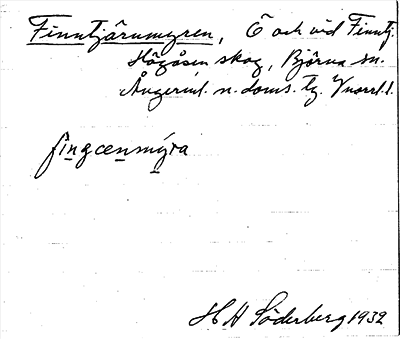 Finntjärnmyren, Ö och vid Finntj.
Högåsen skog, Björna sn.
Ångerml. n. doms. tg. Vnorrl. l.
fingcenmýra
H H Söderberg 1932